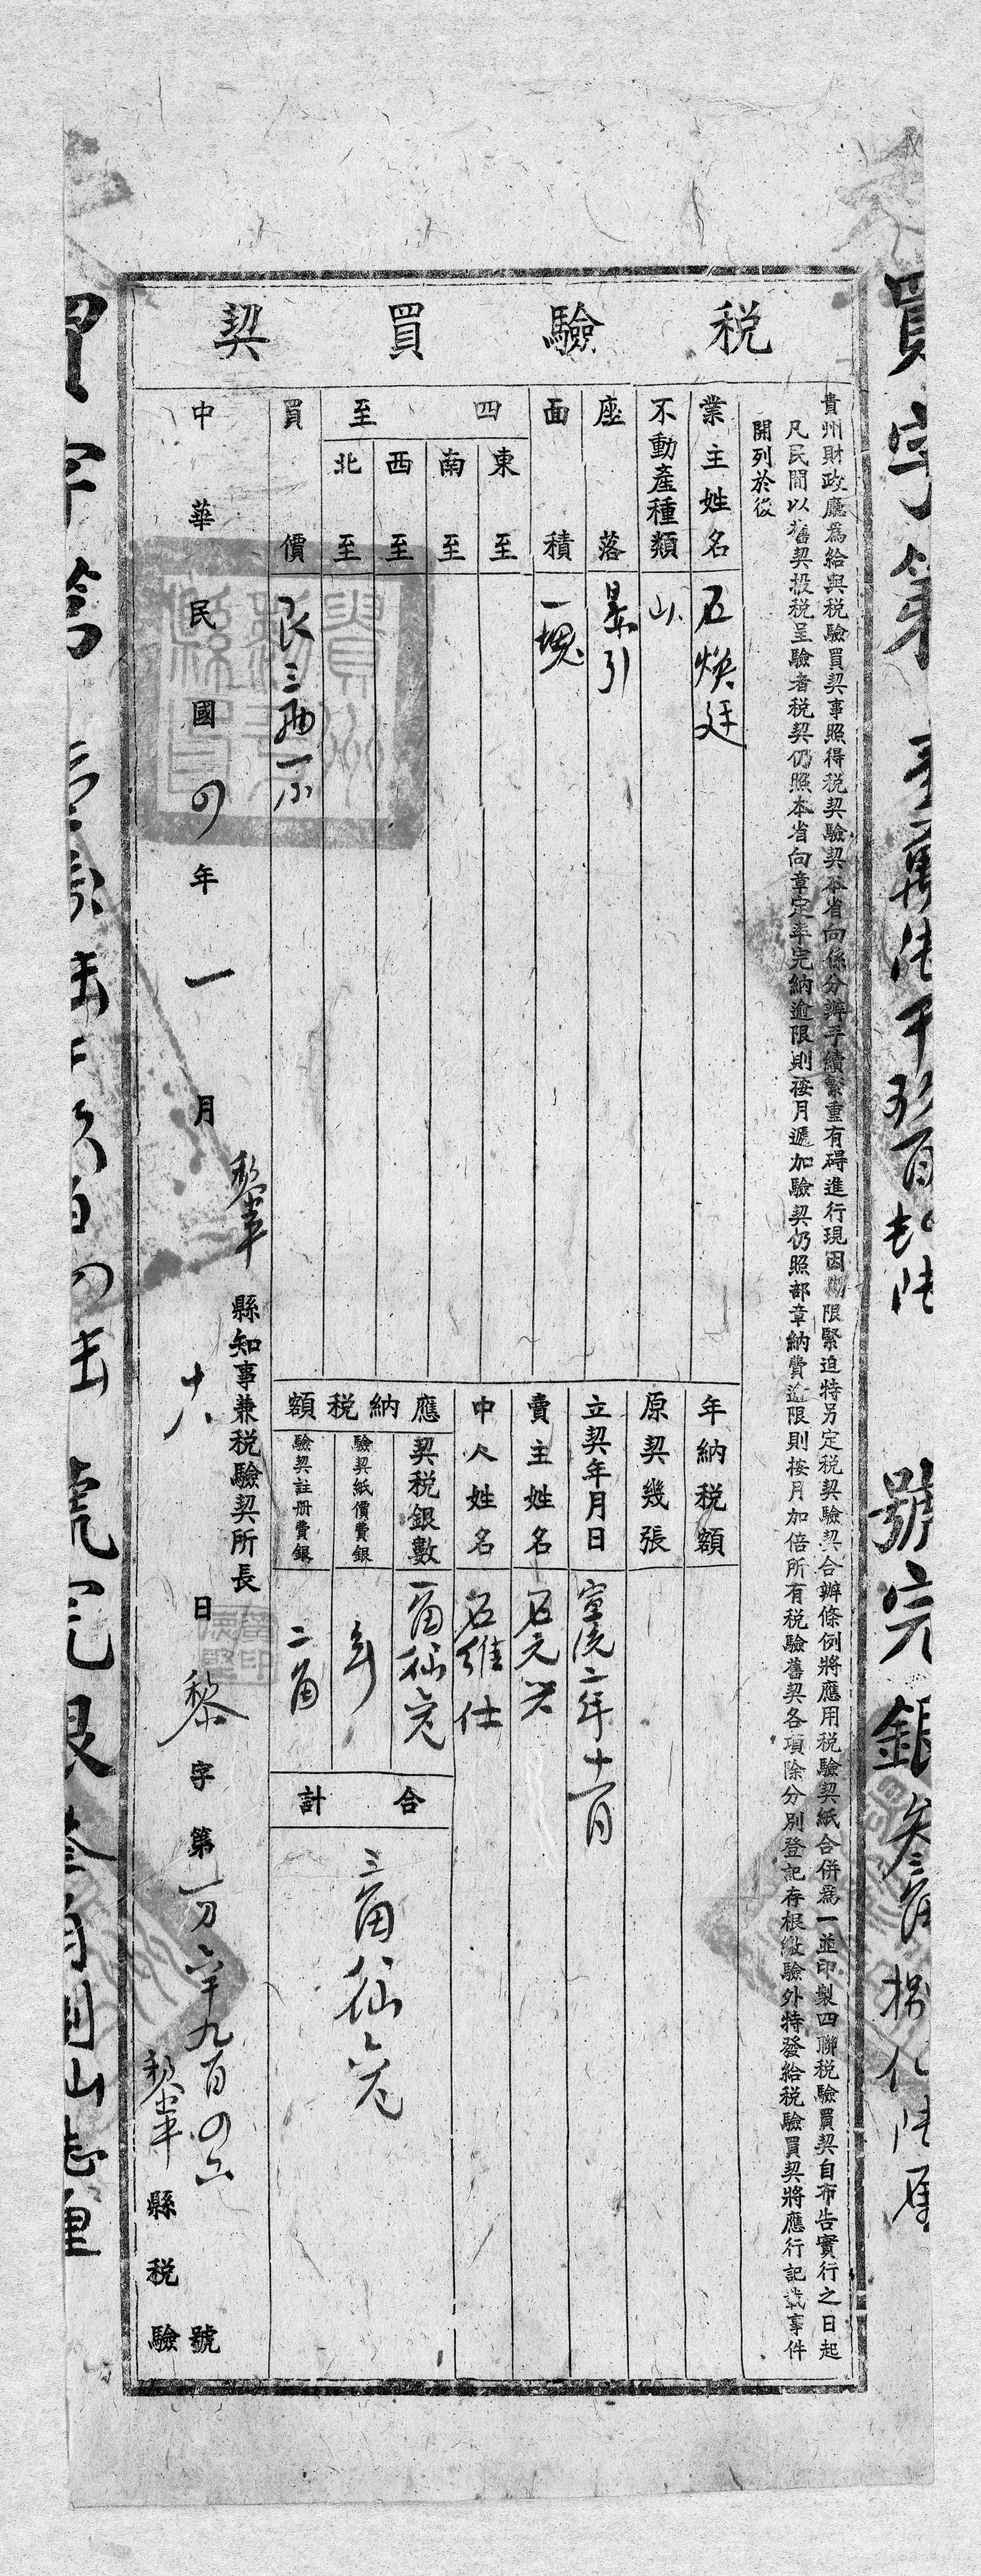 税驗買契
貴州財政廳為給與税驗買契事照得税契驗契本省向係分辦手續繁重有碍進行現因期限緊迫特另定税契驗契合辦條例將應用税驗契紙合併為一並印製四聯税驗買契自布告實行之日起
凡民間以舊契投税呈驗者税契仍照本省向章定率完納逾限則按月遞加驗契仍照部章納費逾限則按月加倍所有税驗舊契各項除分別登記存根繳驗外特發給税驗買契將應行記載事件
開列於後
業主姓名 石煥廷
不動產種類 山
座落 引
面積 一塊
四至
東至
南至
西至
北至
買價 艮三兩一
年納税額
原契幾張
立契年月日 宣統二年十一月
賣主姓名 石元
中人姓名 石維仕
應納税額
契税銀數 一角仙
驗契紙價費銀
驗契註册費銀 二角
合計
三角八仙
黎平縣知事兼税驗契所長
中華民國四年一月十八日黎字第一万六千九百四六號
黎平縣税驗
買字第壹萬陆千玖百肆陆號完銀叁角捌仙陆厘